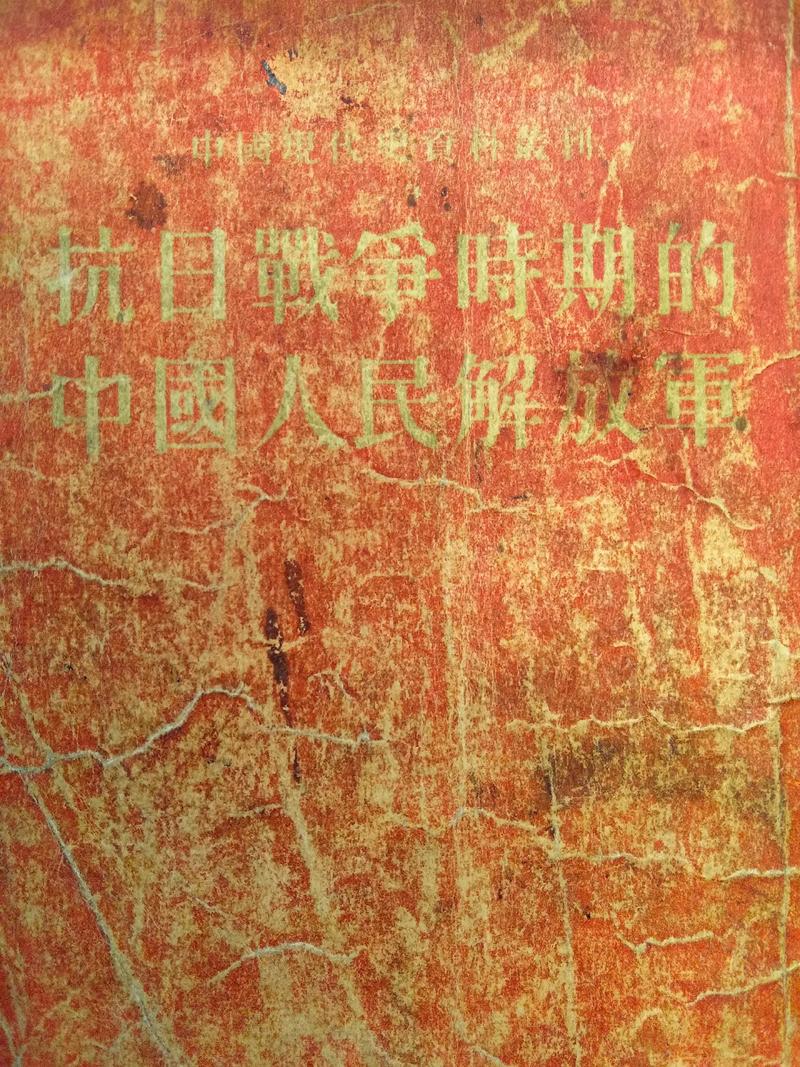 中國現代史資料叢刊
抗日戰爭時期的
中國人民解放軍